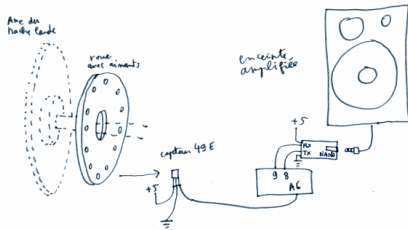 Axe du
hache lande
roue
avec aimants
enceinte
amplifiée
capteur 49 E
+5
+5
RX
TX
NANO
9 8
A6